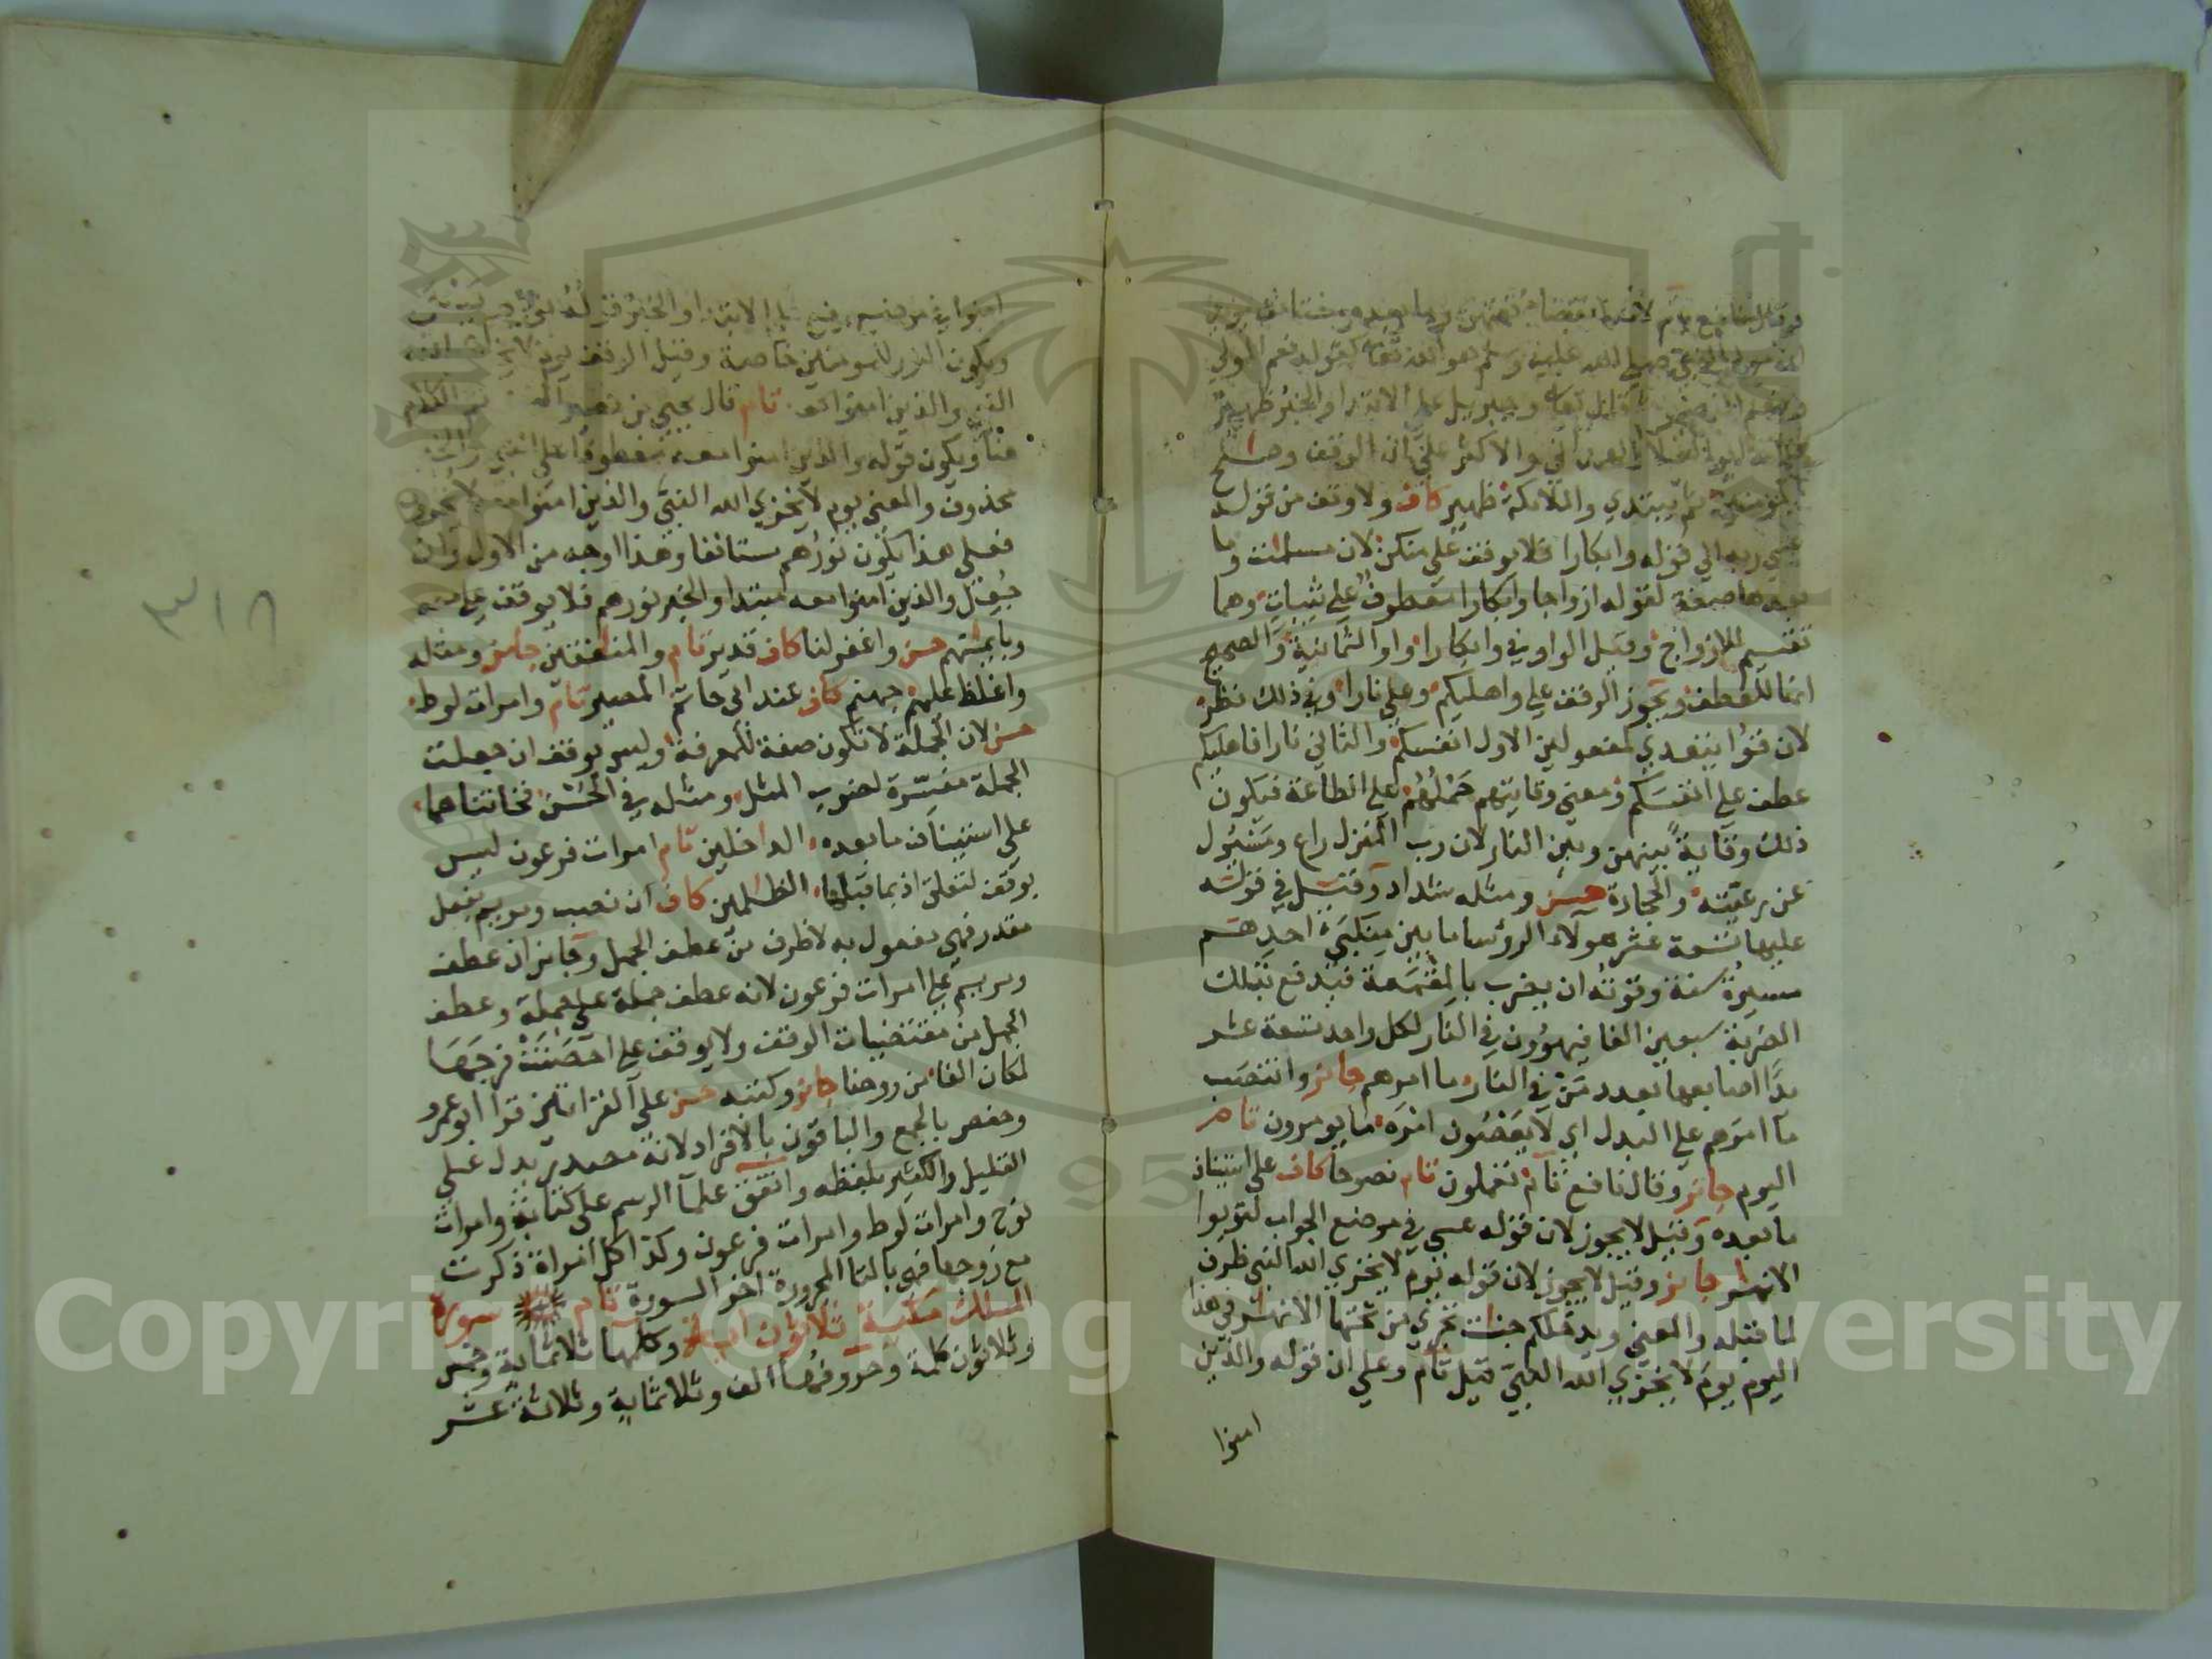 وقال نافع تم لانهما نقضا
صلى الله عليه وسلم هو الله تعالى كقوله نعم المولى
وجبريل على الابتداء والخبر ظهير
والاكثر على ان الوقف وصلح
المؤمنين ثم يبتدي والملائكة ظهير كاف ولا وقف من قوله
عسي ربه الي قوله وابكارا فلا يوقف على منكن لان مسلمات وما
بعدها صفة لقوله ازواجا وابكارا معطوف علي ثيبات وهما
تقسيم للازواج وقيل الواو في وابكارا واو الثمانية والصحيح
انها للعطف ويجوز الوقف علي واهليكم وعلي نارا وفي ذلك نظر
لان قوا يتعدي لمفعولين الاول انفسكم والثاني نارا فاهليكم
عطف على انفسكم ومعنى وقايتهم حملهم على الطاعة فيكون
ذلك وقاية بينهم وبين النار لان رب المنزل راع ومسئول
عن رعيته والحجارة حسن ومثله شداد وقيل في قوله
عليها تسعة عشر هولاء الرؤسا ما بين منكبي احدهم
مسيرة سنة وقوته ان يضرب بالمقمعة فيدفع بتلك
الضربة سبعين الفا فيهوون في النار لكل واحد تسعة عشر
يدا اصابعها بعدد من في النار ما امرهم جائز وانتصب
ما امرهم علي البدل اي لا يعصون امره ما يومرون تام
اليوم جائز وقال نافع تام تعملون تام نصوحا كاف على استيناف
ما بعده وقيل لا يجوز لان قوله عسي في موضع الجواب لتوبوا
الانهر جائز وقيل لا يجوز لان قوله يوم لا يخزي الله النبي ظرف
لما قبله والمعني ويدخلكم جنات تجري من تحتها الانهار في هذا
اليوم يوم لا يخزي الله النبي قيل تام وعلي ان قوله والذين
امنوا
امنوا في موضع رفع على الابتداء والخبر قوله نورهم يسعى
ويكون النور للمومنين خاصة وقيل الوقف يوم لا يخزي الله
النبي والذين امنوا معه تام قال يحيي بن نصير تم الكلام
هنا ويكون قوله والذين امنوا معه معطوفا على النبي
محذوف والمعني يوم لا يخزي الله النبي والذين امنوا معه لا يخزون
فعلى هذا يكون نورهم مستانفا وهذا اوجه من الاول وان
جعل والذين امنوا معه مبتدا والخبر نورهم فلا يوقف على معه
وبايمانهم حسن واغفر لنا كاف قدير تام والمنافقين جائز ومثله
واغلظ عليهم جهنم كاف عند ابي حاتم المصير تام وامرات لوط
حسن لان الجملة لا تكون صفة للمعرفة وليس بوقف ان جعلت
الجملة مفسرة لضرب المثل ومثله في الحسن فخانتاهما
على استيناف ما بعده الداخلين تام امرات فرعون ليس
بوقف لتعلق اذ بما قبلها الظلمين كاف ان نصب ومريم بفعل
مقدر فهي مفعول به لا ظرف من عطف الجمل وجائز ان عطف
ومريم علي امرات فرعون لانه عطف جملة على جملة وعطف
الجمل من مقتضيات الوقف ولا يوقف علي احصنت فرجها
لمكان الفا من روحنا جائز وكتبه حسن على القراتين قرا ابو عمرو
وحفص بالجمع والباقون بالافراد لانه مصدر يدل على
القليل والكثير بلفظه واتفق علمآ الرسم على كتابة وامرات
نوح وامرات لوط وامرات فرعون وكذا كل امراة ذكرت
مع زوجها فهي بالتا المجرورة اخر السورة تام سورة
الملك مكية ثلاثون اية وكلمها ثلاثماية وخمس
وثلاثون كلمة وحروفها الف وثلاثماية وثلاثة عشر
٣١٨
Copyright © King Saud University
1957